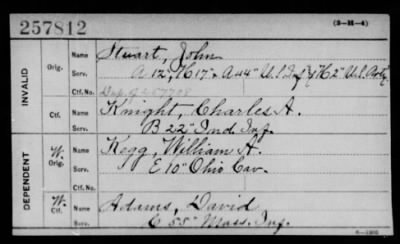 257812
(3-H-4)
INVALID
Orig.
Name Stuart, John
Serv. A 12", H 17" & A 44" U.S. Inf. & H 2" U.S. Arty.
Ctf. No.
Ctf.
Name Knight, Charles A.
Serv. B 22" Ind. Inf.
DEPENDENT
W.
Orig.
Name Kegg, William H.
Serv. E 10" Ohio Cav.
Ctf. No.
W.
Ctf.
Name Adams, David
Serv. C 55" Mass. Inf.